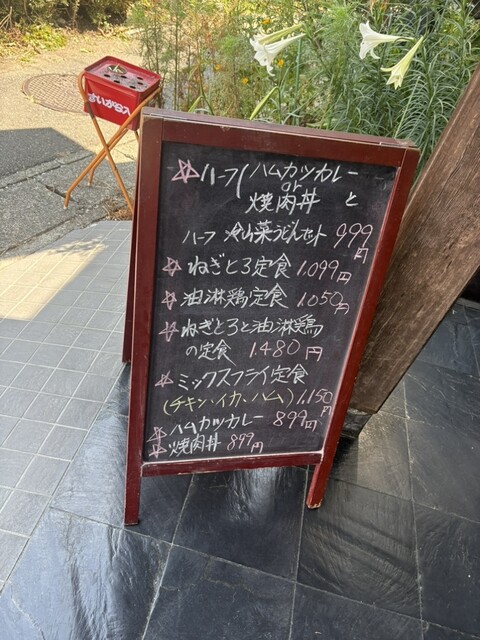 すいがら入
☆ハーフ(ハムカツカレー
or
焼肉丼 と
ハーフ 冷山菜うどんセット 999円
☆ねぎとろ定食 1.099円
☆油淋鶏定食 1.050円
☆ねぎとろと油淋鶏
の定食 1.480円
☆ミックスフライ定食
(チキン、イカ、ハム) 1.150円
☆ハムカツカレー 899円
☆焼肉丼 899円